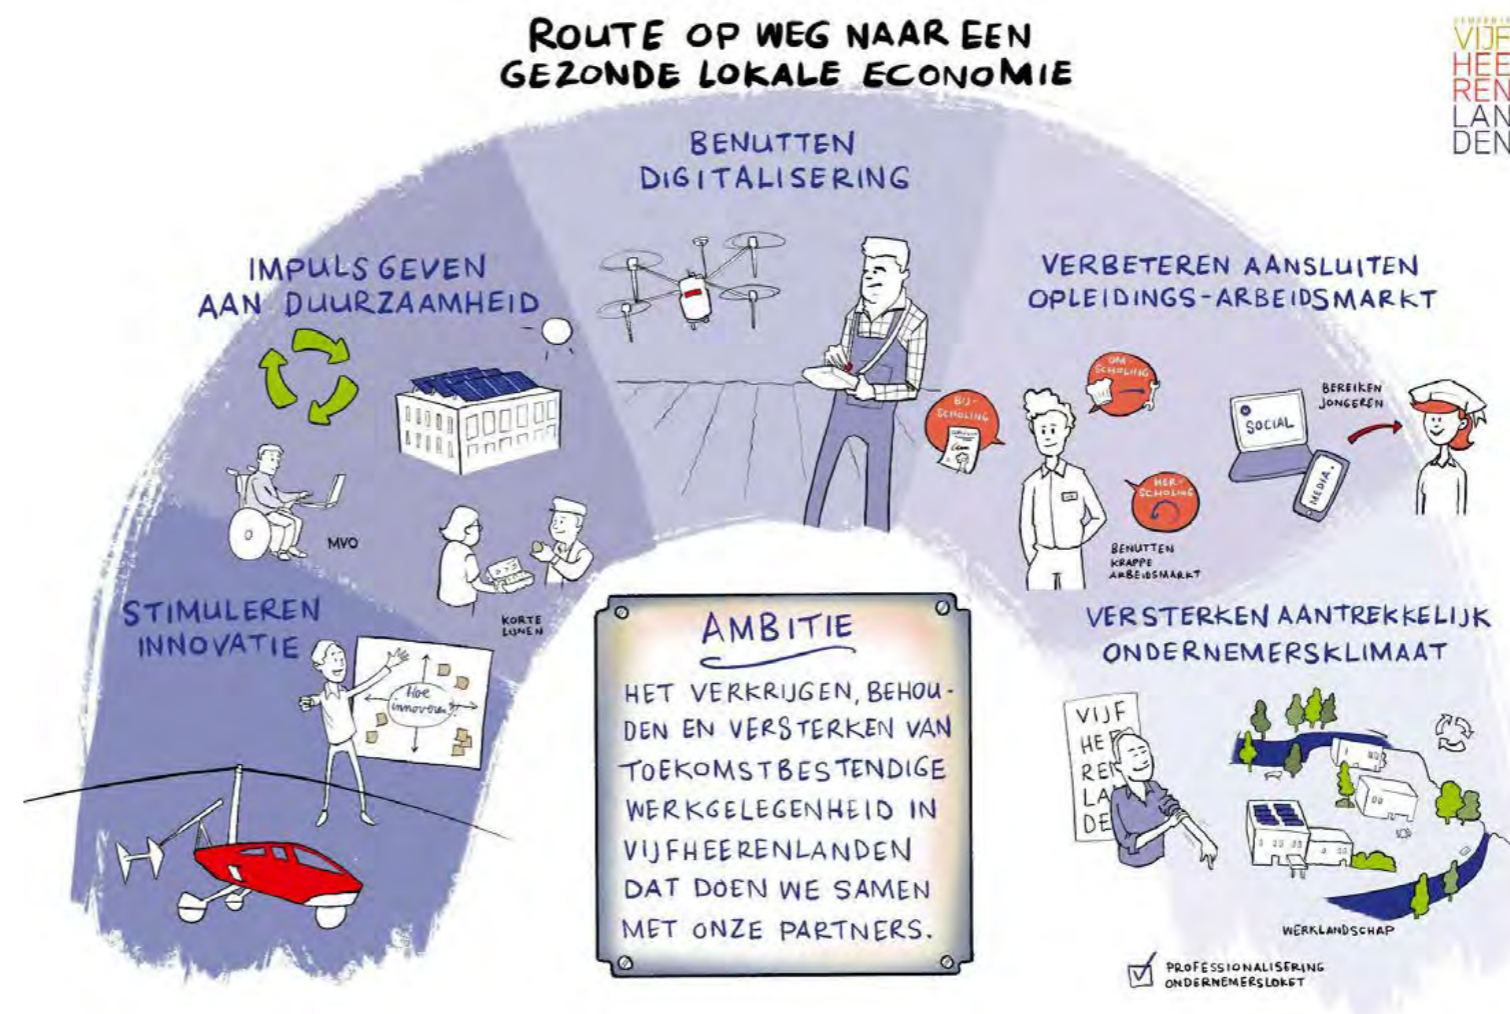 ROUTE OP WEG NAAR EEN
GEZONDE LOKALE ECONOMIE
GEMEENTE
VIJF
HEE
REN
LAN
DEN
BENUTTEN
DIGITALISERING
IMPULS GEVEN
AAN DUURZAAMHEID
MVO
KORTE
LIJNEN
STIMULEREN
INNOVATIE
Hoe
innoveren?
VERBETEREN AANSLUITEN
OPLEIDINGS-ARBEIDSMARKT
BIJ-
SCHOLING
OM-
SCHOLING
HER-
SCHOLING
BENUTTEN
KRAPPE
ARBEIDSMARKT
SOCIAL
MEDIA.
BEREIKEN
JONGEREN
AMBITIE
HET VERKRIJGEN, BEHOU-
DEN EN VERSTERKEN VAN
TOEKOMSTBESTENDIGE
WERKGELEGENHEID IN
VIJFHEERENLANDEN
DAT DOEN WE SAMEN
MET ONZE PARTNERS.
VERSTERKEN AANTREKKELIJK
ONDERNEMERSKLIMAAT
VIJF
HEE
REN
LA
DE
WERKLANDSCHAP
PROFESSIONALISERING
ONDERNEMERSLOKET